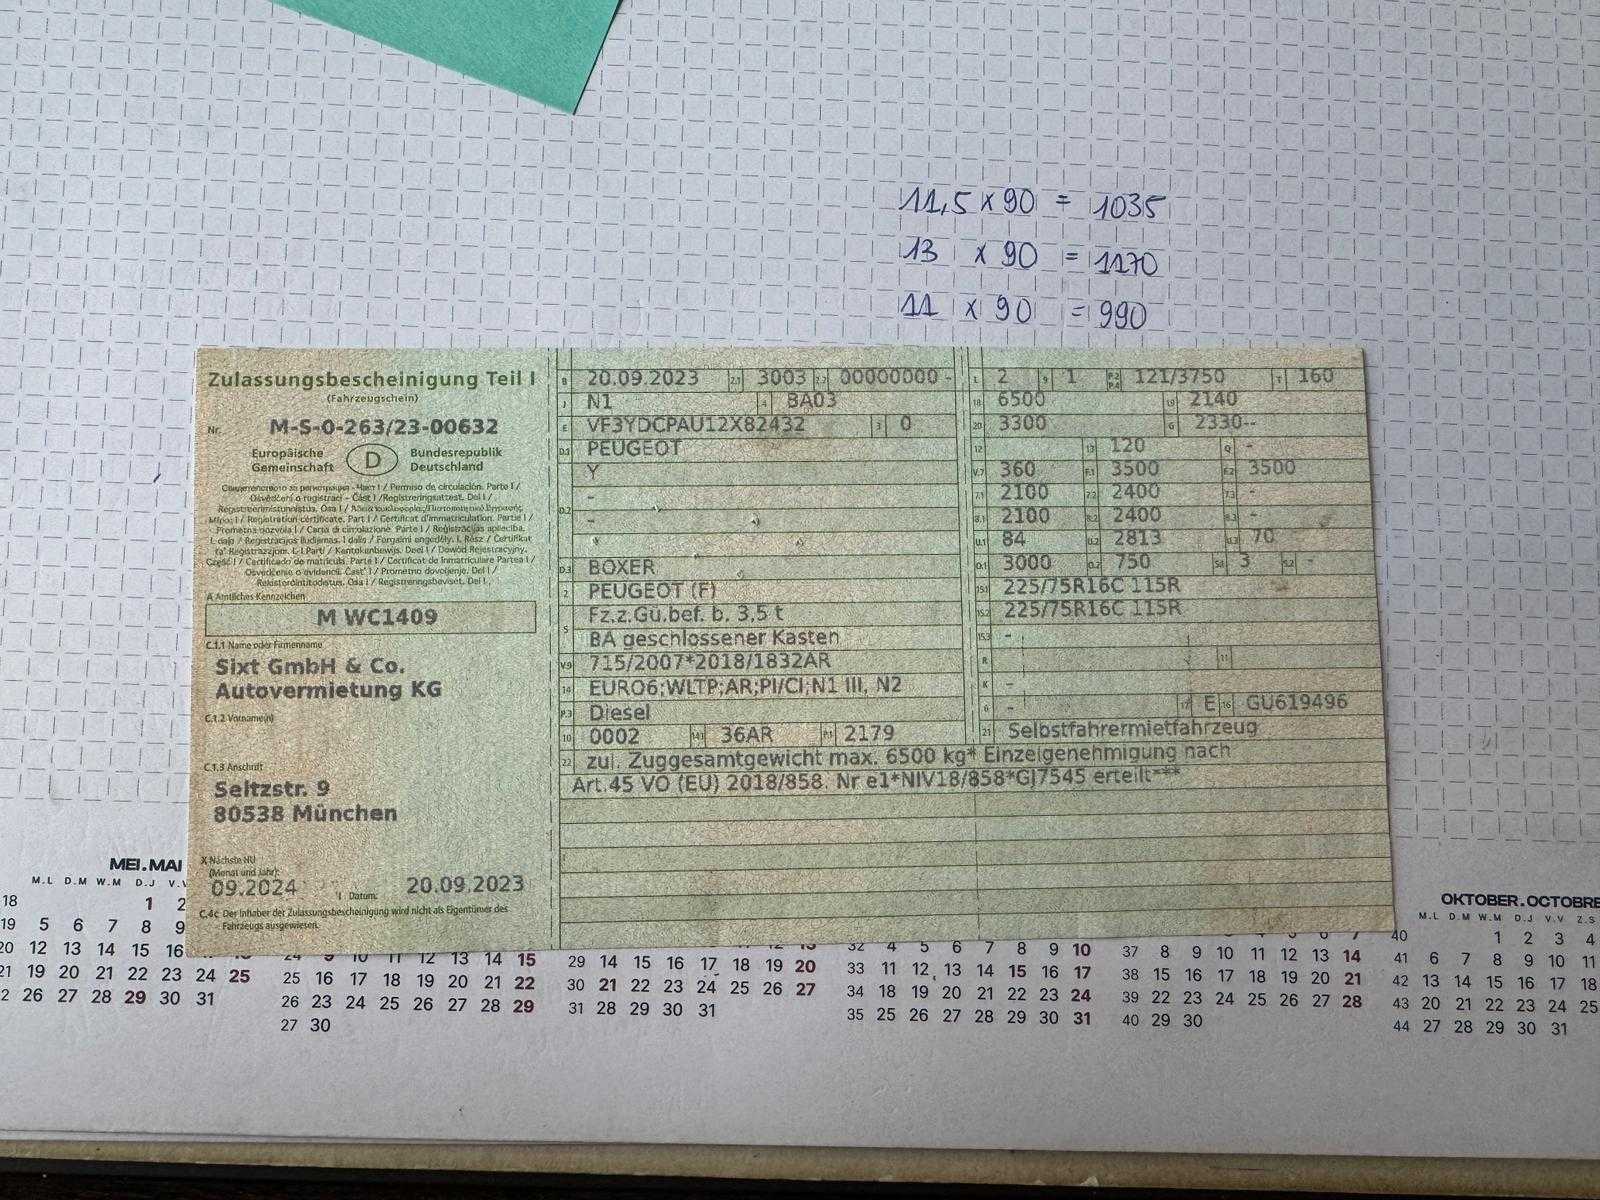 11,5 x 90 = 1035
13 x 90 = 1170
11 x 90 = 990
Zulassungsbescheinigung Teil I
(Fahrzeugschein)
Nr. M-S-0-263/23-00632
Europäische Gemeinschaft D Bundesrepublik Deutschland
A Amtliches Kennzeichen
M WC1409
C.1.1 Name oder Firmenname
Sixt GmbH & Co.
Autovermietung KG
C.1.2 Vorname(n)
C.1.3 Anschrift
Seitzstr. 9
80538 München
X Nächste HU
(Monat und Jahr):
09.2024 I Datum: 20.09.2023
C.4c Der Inhaber der Zulassungsbescheinigung wird nicht als Eigentümer des
Fahrzeugs ausgewiesen.
B 20.09.2023 2.1 3003 2.2 00000000 -
J N1 4 BA03
E VF3YDCPAU12X82432 3 0
D.1 PEUGEOT
Y
-
D.2 -
-
D.3 BOXER
2 PEUGEOT (F)
5 Fz.z.Gü.bef. b. 3,5 t
BA geschlossener Kasten
V.9 715/2007*2018/1832AR
14 EURO6;WLTP;AR;PI/CI;N1 III, N2
P.3 Diesel
10 0002 14.1 36AR P.1 2179
L 2 9 1 P.2 P.4 121/3750 T 160
18 6500 19 2140
20 3300 G 2330--
12 13 120 Q -
V.7 360 F.1 3500 F.2 3500
7.1 2100 7.2 2400 7.3 -
8.1 2100 8.2 2400 8.3 -
U.1 84 U.2 2813 U.3 70
O.1 3000 O.2 750 S.1 3 S.2 -
15.1 225/75R16C 115R
15.2 225/75R16C 115R
15.3 -
R 11
K -
6 - 17 E 16 GU619496
21 Selbstfahrermietfahrzeug
22 zul. Zuggesamtgewicht max. 6500 kg* Einzelgenehmigung nach
Art.45 VO (EU) 2018/858. Nr e1*NIV18/858*GJ7545 erteilt***
MEI.MAI
M.L D.M W.M D.J V.V
18 1 2
19 5 6 7 8 9
20 12 13 14 15 16
21 19 20 21 22 23 24 25
2 26 27 28 29 30 31
24 9 10 11 12 13 14 15
25 16 17 18 19 20 21 22
26 23 24 25 26 27 28 29
27 30
29 14 15 16 17 18 19 20
30 21 22 23 24 25 26 27
31 28 29 30 31
32 4 5 6 7 8 9 10
33 11 12 13 14 15 16 17
34 18 19 20 21 22 23 24
35 25 26 27 28 29 30 31
37 8 9 10 11 12 13 14
38 15 16 17 18 19 20 21
39 22 23 24 25 26 27 28
40 29 30
OKTOBER.OCTOBRE
M.L D.M W.M D.J V.V Z.S
40 1 2 3 4
41 6 7 8 9 10 11
42 13 14 15 16 17 18
43 20 21 22 23 24 25
44 27 28 29 30 31